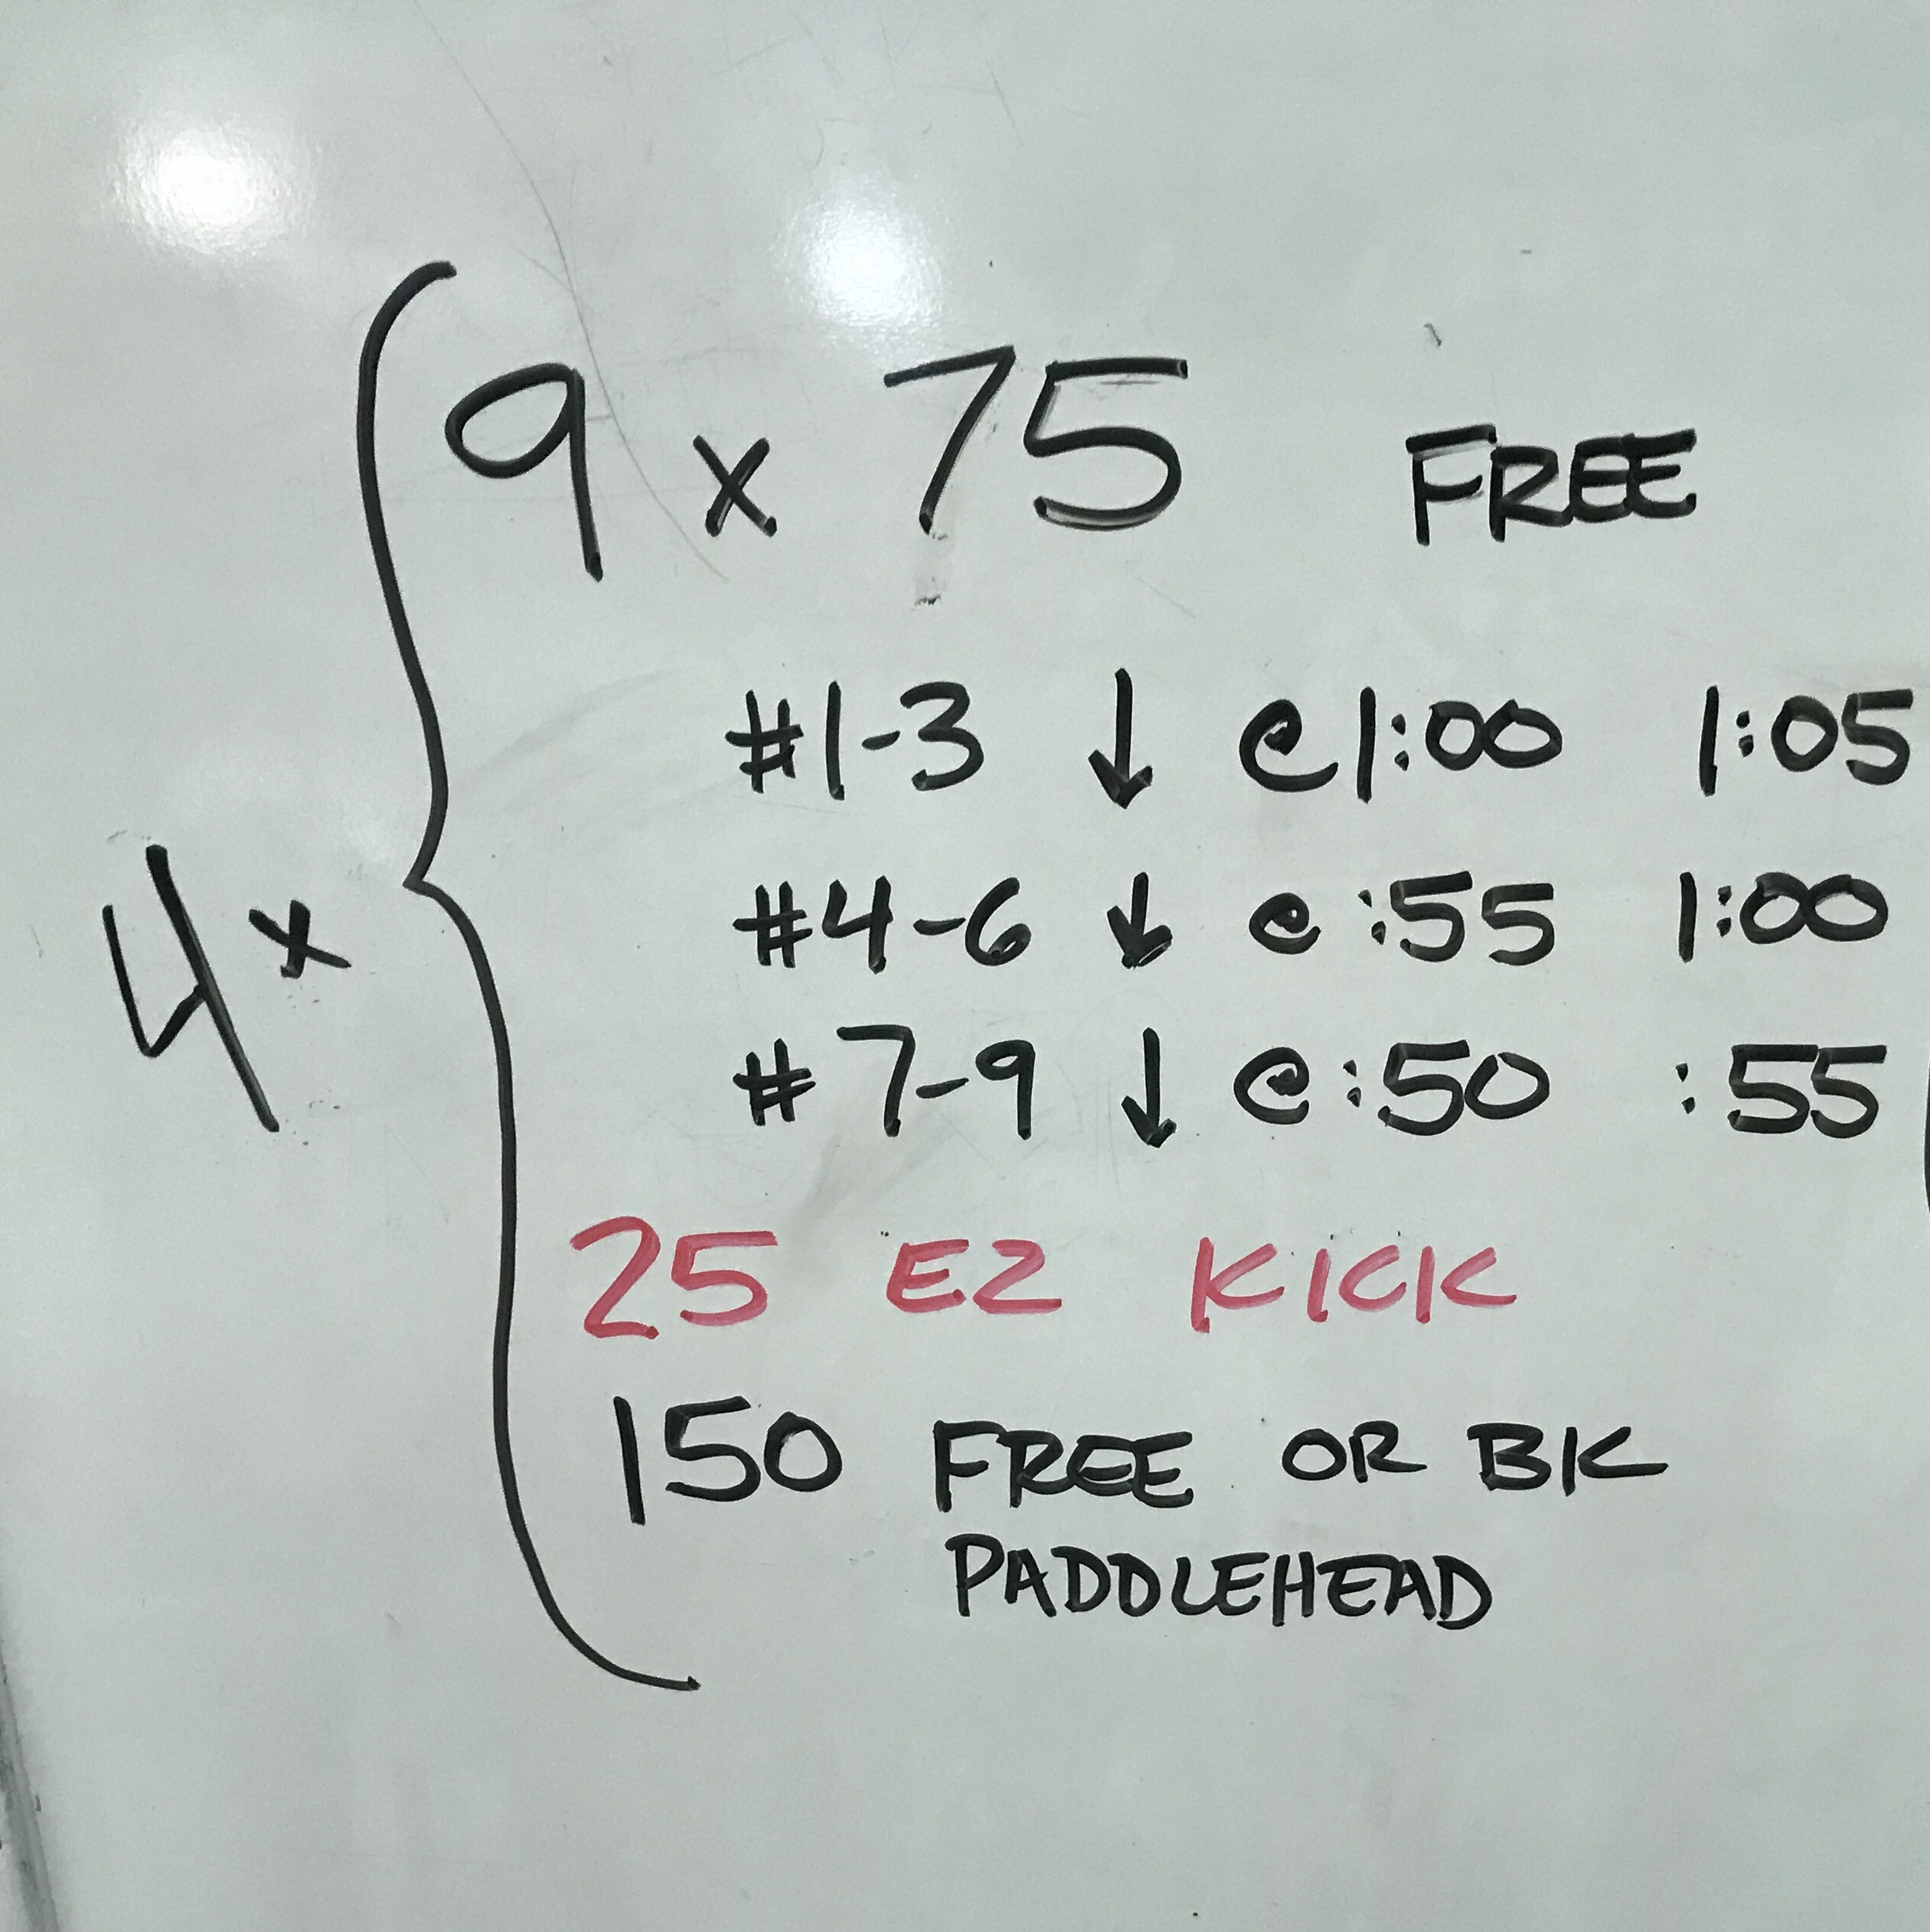 9 x 75 FREE
#1-3 ↓ @ 1:00 1:05
4x
#4-6 ↓ @ :55 1:00
#7-9 ↓ @ :50 :55
25 EZ KICK
150 FREE OR BK
PADDLEHEAD